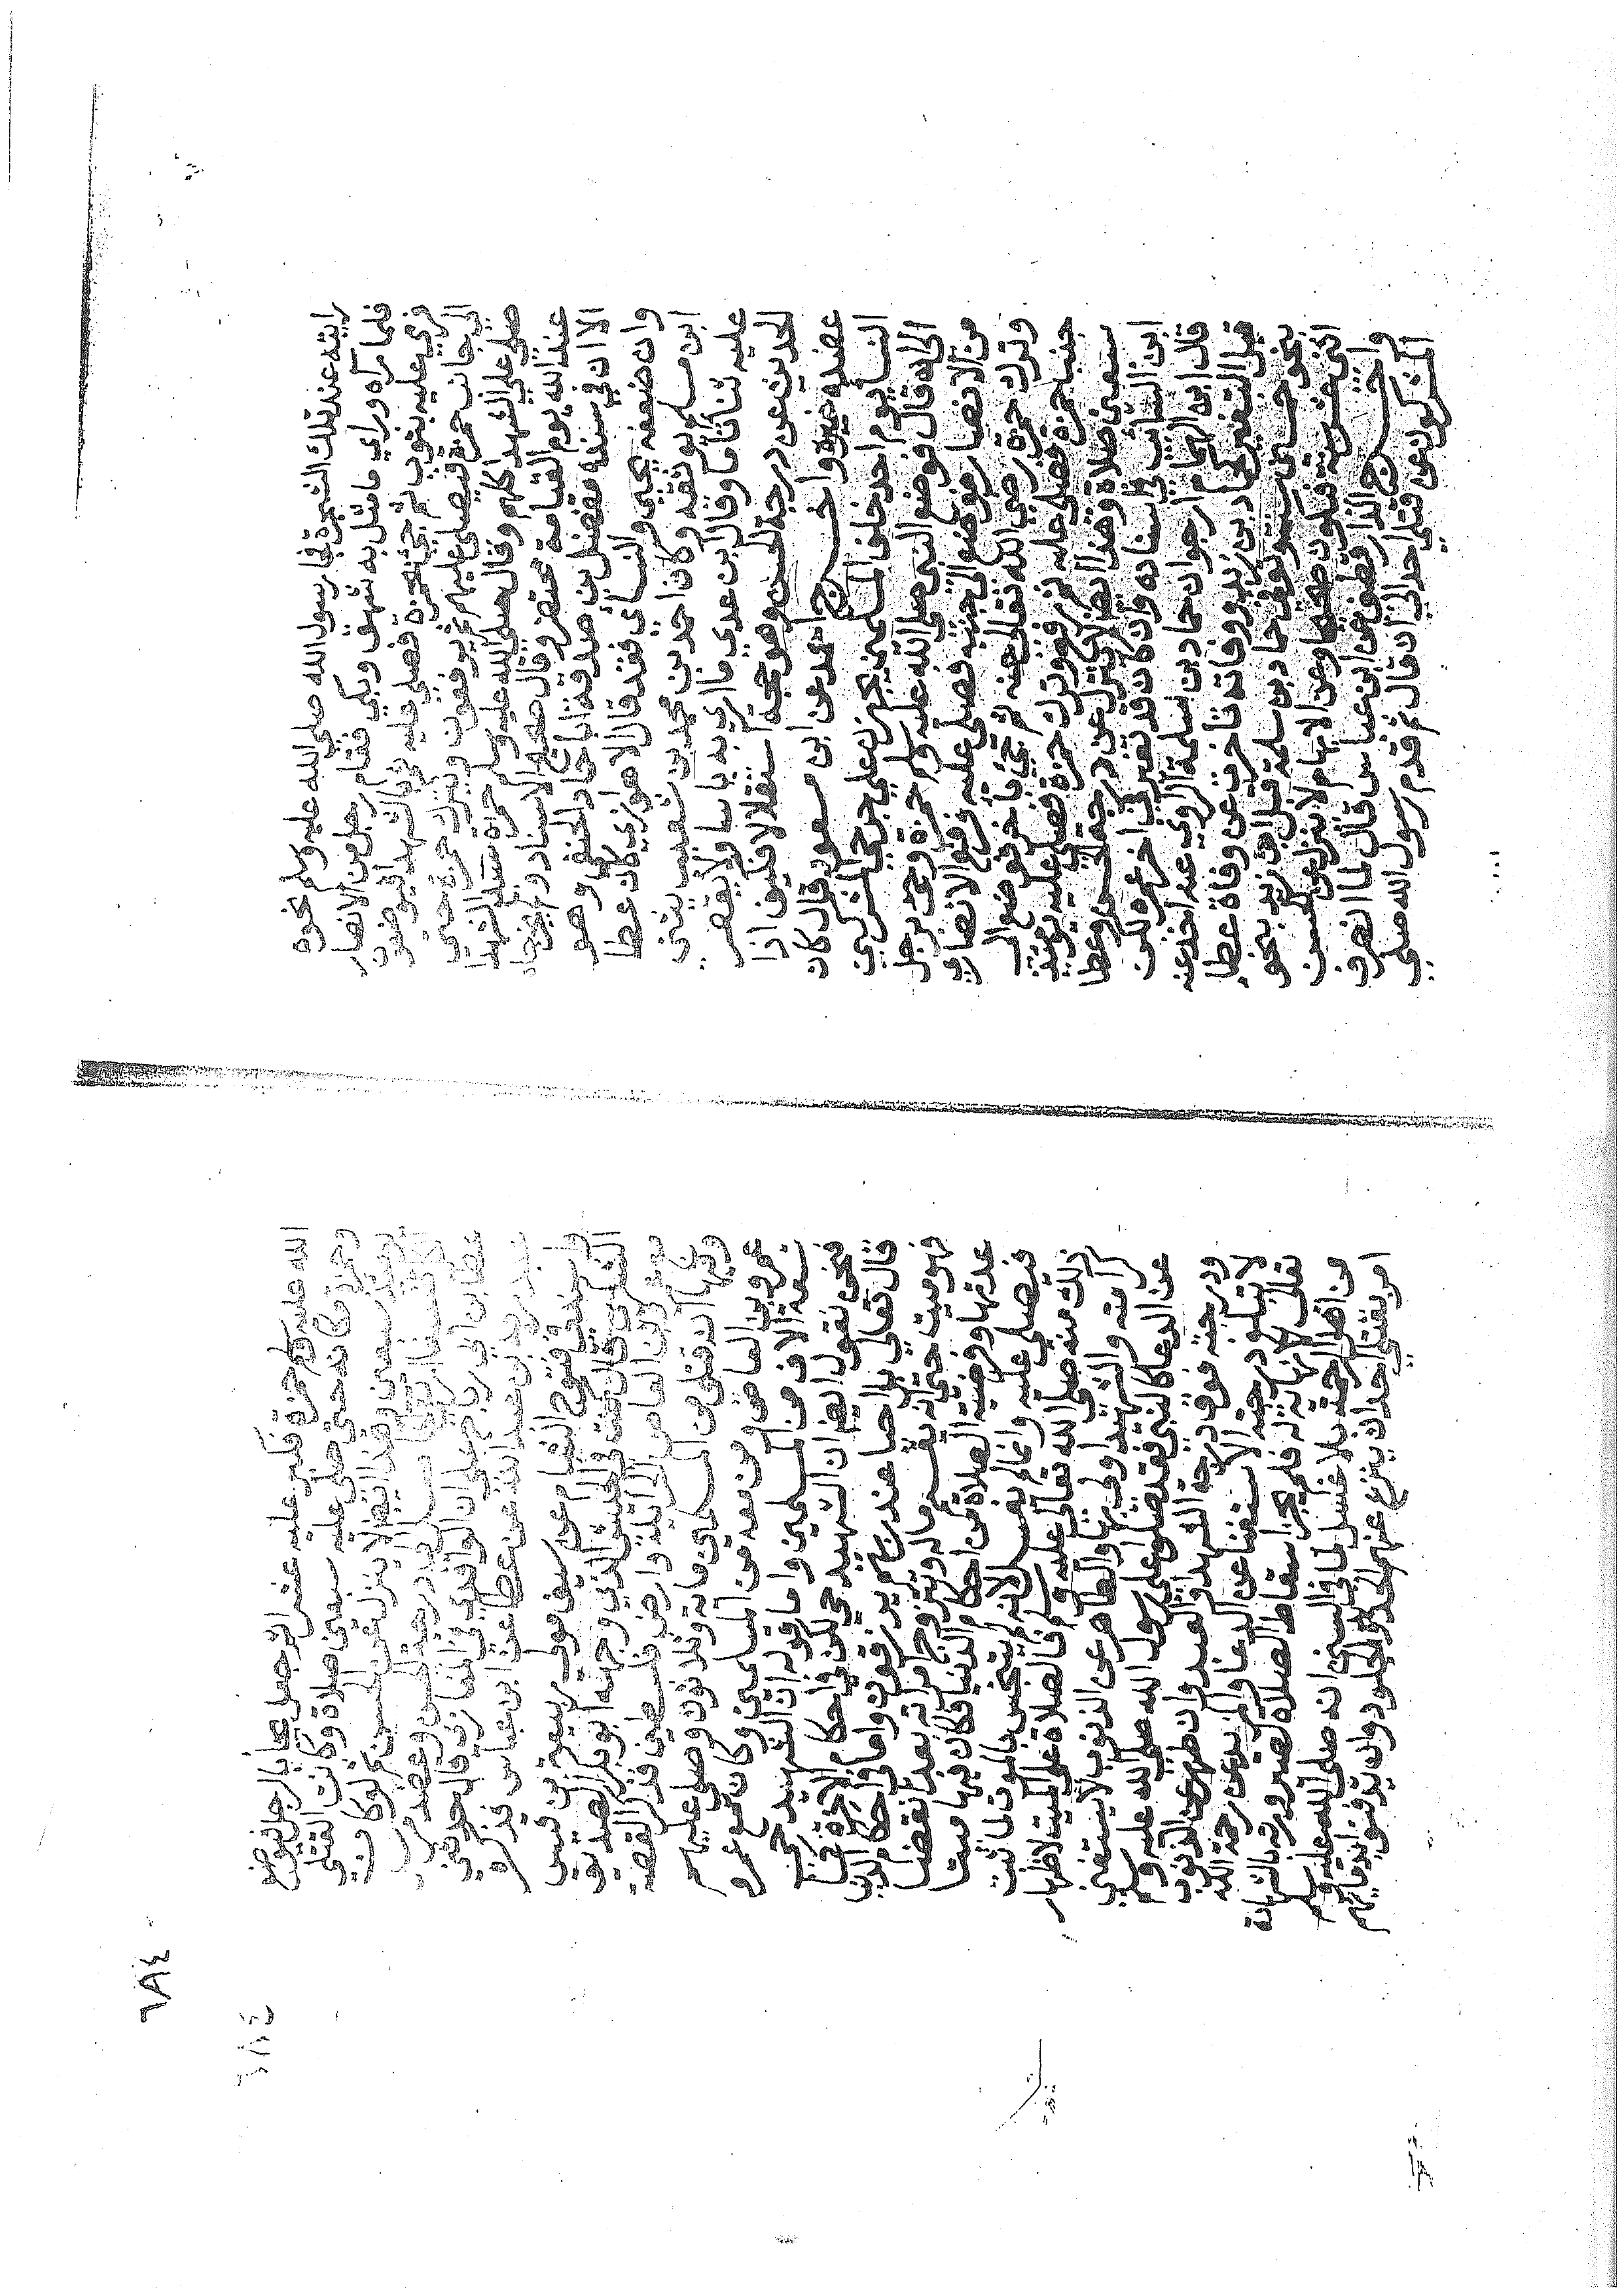 رايته عند تلك الشجرة فجا رسول الله صلي الله عليه وسلم نحوه
فلما رآه وراي ما مثل به شهق وبكي فقام رجل من الانصار
فرمي عليه بثوب ثم جئ بحمزة فصلي عليه ثم بالشهدا فيوضعون
الي جانب حمزة فيصلي عليهم ثم يرفعون ويترك حمزة حتي
صلي علي الشهدا كلهم وقال صلي الله عليه وسلم حمزة سيد الشهدا
عند الله يوم القيامة مختصر وقال صحيح الاسناد ولم يخرجاه
الا ان في سنده مفضل بن صدقة ابا حماد الحنفي وهو
وان ضعفه يحيي والنساي فقد قال الاهوازي كان عطا
ابن مسلم يوثقه وكان احمد بن محمد بن شعيب يثني
عليه ثناً تاما وقال ابن عدي ما اري به باسا ولا يقصر
الحديث عن درجة الحسن وهو حجة استقلالا فكيف اذا
عضده غيره واخرج احمد عن ابن مسعود قال كان
النسا يوم احد خلف المسلمين يجهزن علي جرحي المشركين
الي ان قال فوضع النبي صلي الله عليه وسلم حمزة وجئ برجل
من الانصار فوضع الي جنبه فصلي عليه فرفع الانصاري
وترك حمزة رضي الله تعالي عنه ثم جئ باخر فوضع الي
جنب حمزة فصلي عليه ثم رفع وترك حمزة فصلي عليه يومئذ
سبعين صلاة وهذا ايضا لا ينزل عن درجة الحسن وعطا
ابن السائب في اسناده وان كان قد تغير في اخر عمره لكن
قال ابن الهمام ارجو ان حماد بن سلمة الراوي عنه اخذ عنه
قبل التغير كحماد بن زيد ووفاته تاخرت عن وفاة عطا
بنحو خمسين سنة توفي حماد بن سلمة قبل ابن زيد بنحو
اثني عشر سنة فيكون صحيحا وعن الابهام لا ينزل عن الحسن
واخرج الدارقطني عن ابن عباس قال لما انصرف
المشركون عن قتلي احد الي ان قال ثم قدم رسول الله صلي
الله عليه وسلم حمزة فكبر عليه عشرا ثم جعل يجا بالرجل فيوضع
وحمزة مكانه حتي صلي عليه سبعين صلاة وكانت القتلي
يومئذ سبعين وهذا ايضا لا ينزل عن الحسن ثم لو كان
درجة الحسن وعضد
علي ان الواقدي في المغازي قال حدثني
عبد ربه بن عبد الله عن عطا عن ابن عباس فذكره
فتوح الشام عن سيف مولي ربيعة بن قيس
قال كنت في الجيش الذي وجهه ابو بكر الصديق
عمرو بن العاص الي ايلة وارض فلسطين فذكر القصة
وفيها انه قتل من المسلمين ماية وثلاثون وصلي عليهم
عمرو بن العاص ومن معه من المسلمين وكان مع عمرو
تسعة الاف من المسلمين واما قوله ان الشهيد حي
فنحن نقول ايضا ان الشهيد حي لكن في احكام الاخرة كما
قال تعالي بل احيا عند ربهم يرزقون واما في احكام الدنيا
فهو ميت حتي انه يقسم ماله وتتزوج امراته بعد انقضا
عدتها وفرضية الصلاة من احكام الدنيا فكان فيها ميتا
فيصلي عليه وانما لم يغسل لانه لم يتنجس بالموت لما ثبت
ذلك منه صلي الله تعالي عليه وسلم فالصلاة علي الميت لاظهار
كرامته والشهيد اولي بها والطاهر عن الذنوب لا يستغني
عن الدعا كالنبي فقد صلوا علي رسول الله صلي الله عليه وسلم
ودرجته فوق درجة الشهيد والعبد وان طهر عن الذنوب
لا تبلغ درجته الاستغنا عن الدعا ولم يدع عن رحمة الله
تعالي لا نهاية له فلم يجز اسقاط الصلاة لصيرورته بالشهادة
من اهل الرحمة بلا غسل لما في السنن انه صلي الله عليه وسلم
امر بقتلي احد ان ينزع عنهم الحديد والجلود وان يدفنوا بدمايهم